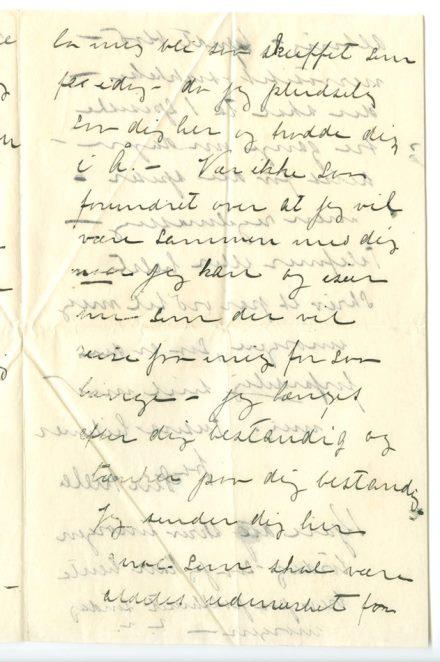 la mig bli saa skuffet som
fredag – da jeg pludselig
saa dig her og trodde dig
i Å. – Vær ikke saa
forundret over at jeg vil
være sammen med dig
naar jeg kan og især
nu – som du vil
reise fra mig for saa
længe – jeg længes
efter dig bestandig og
tænker paa dig bestandig.
Jeg sender dig her
noe som skal være
aldeles udmærket for